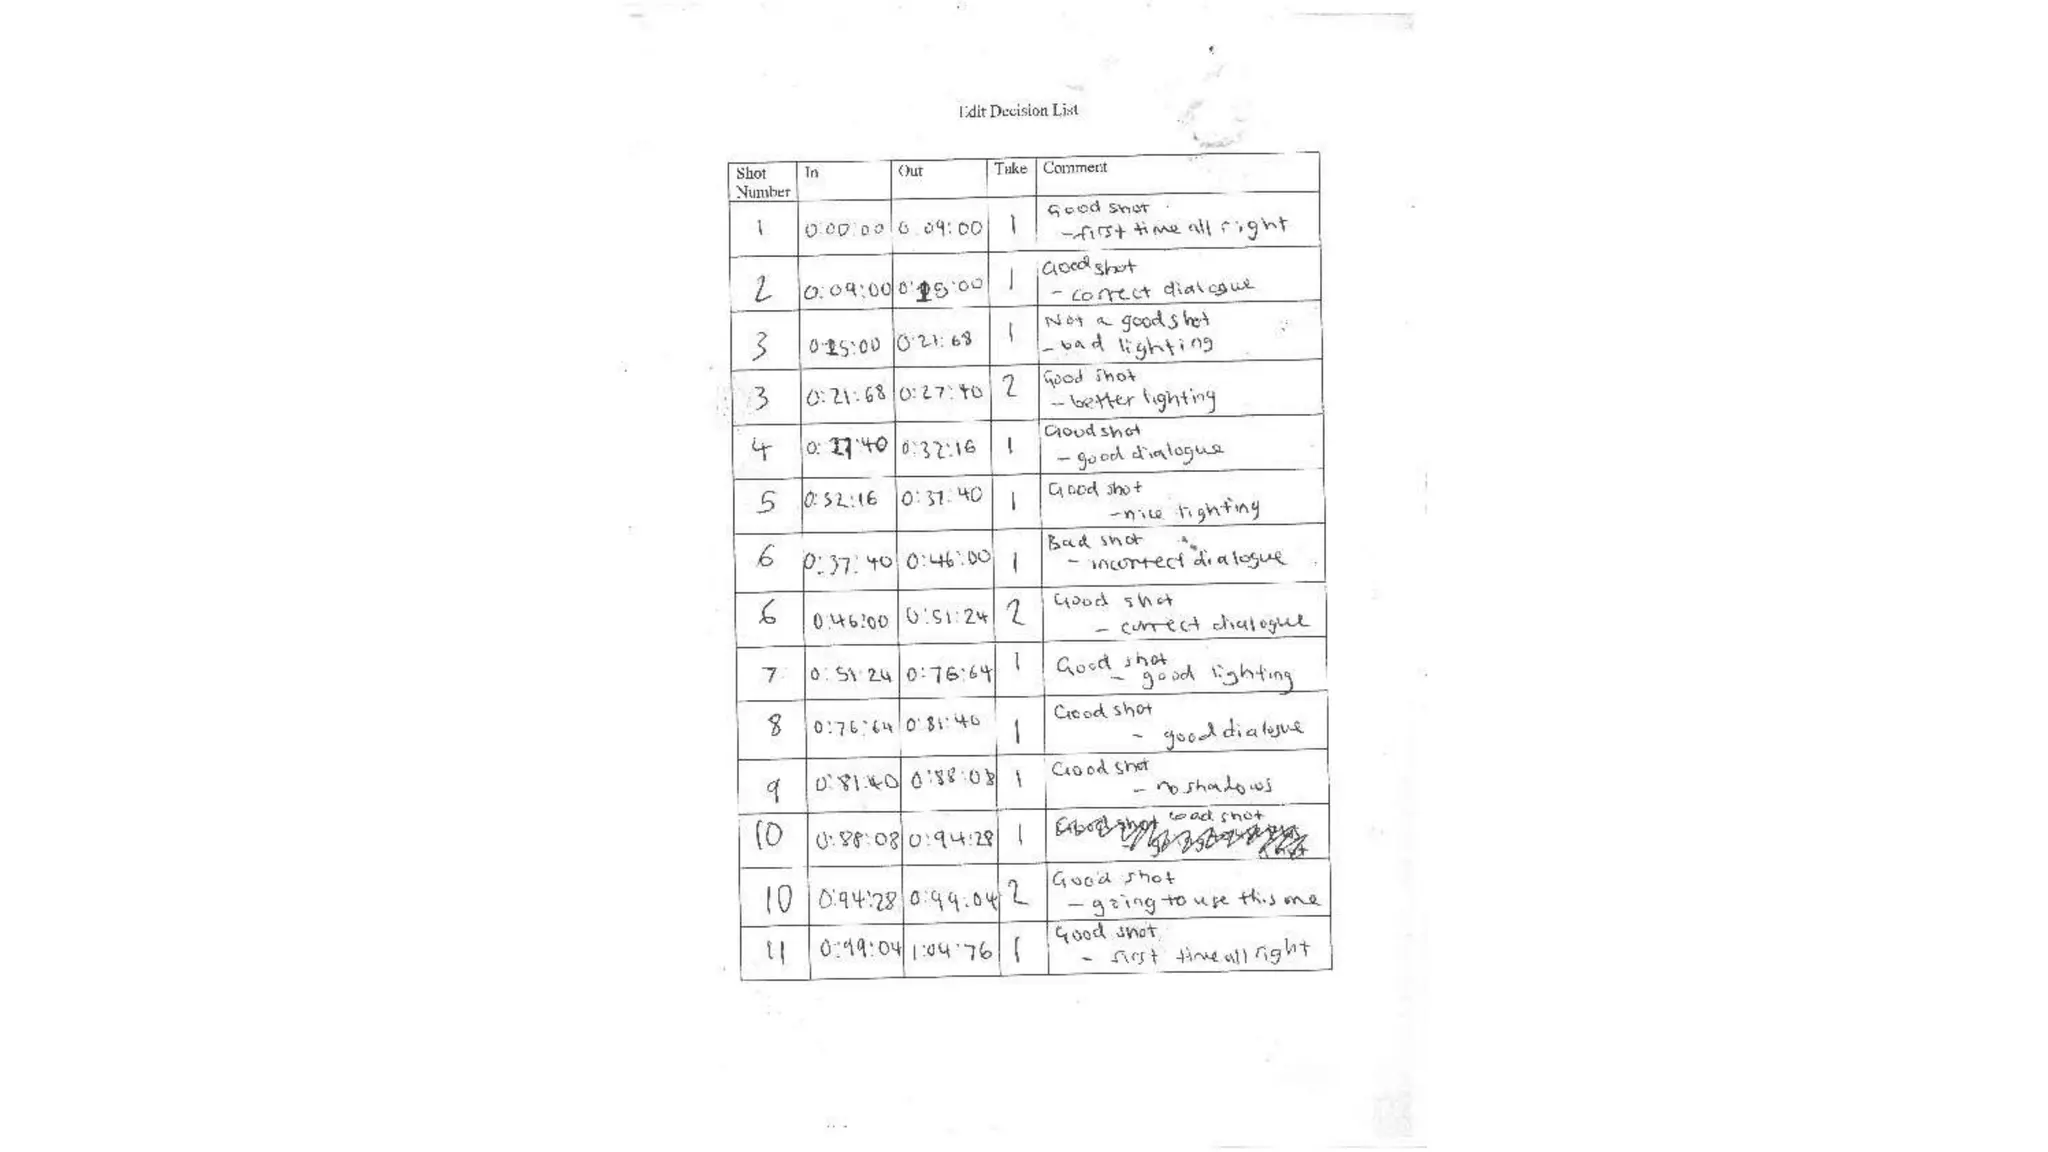 Edit Decision List
Shot Number In Out Take Comment
1 0:00:00 0:09:00 1 Good shot
-first time all right
2 0:09:00 0:15:00 1 Good shot
- correct dialogue
3 0:15:00 0:21:68 1 Not a good shot
- bad lighting
3 0:21:68 0:27:40 2 Good shot
- better lighting
4 0:27:40 0:32:16 1 Good shot
- good dialogue
5 0:32:16 0:37:40 1 Good shot
- nice lighting
6 0:37:40 0:46:00 1 Bad shot
- incorrect dialogue
6 0:46:00 0:51:24 2 Good shot
- correct dialogue
7 0:51:24 0:76:64 1 Good shot
- good lighting
8 0:76:64 0:81:40 1 Good shot
- good dialogue
9 0:81:40 0:88:08 1 Good shot
- no shadows
10 0:88:08 0:94:28 1 shot
10 0:94:28 0:99:04 2 Good shot
- going to use this one
11 0:99:04 1:04:76 1 Good shot
- first time all right